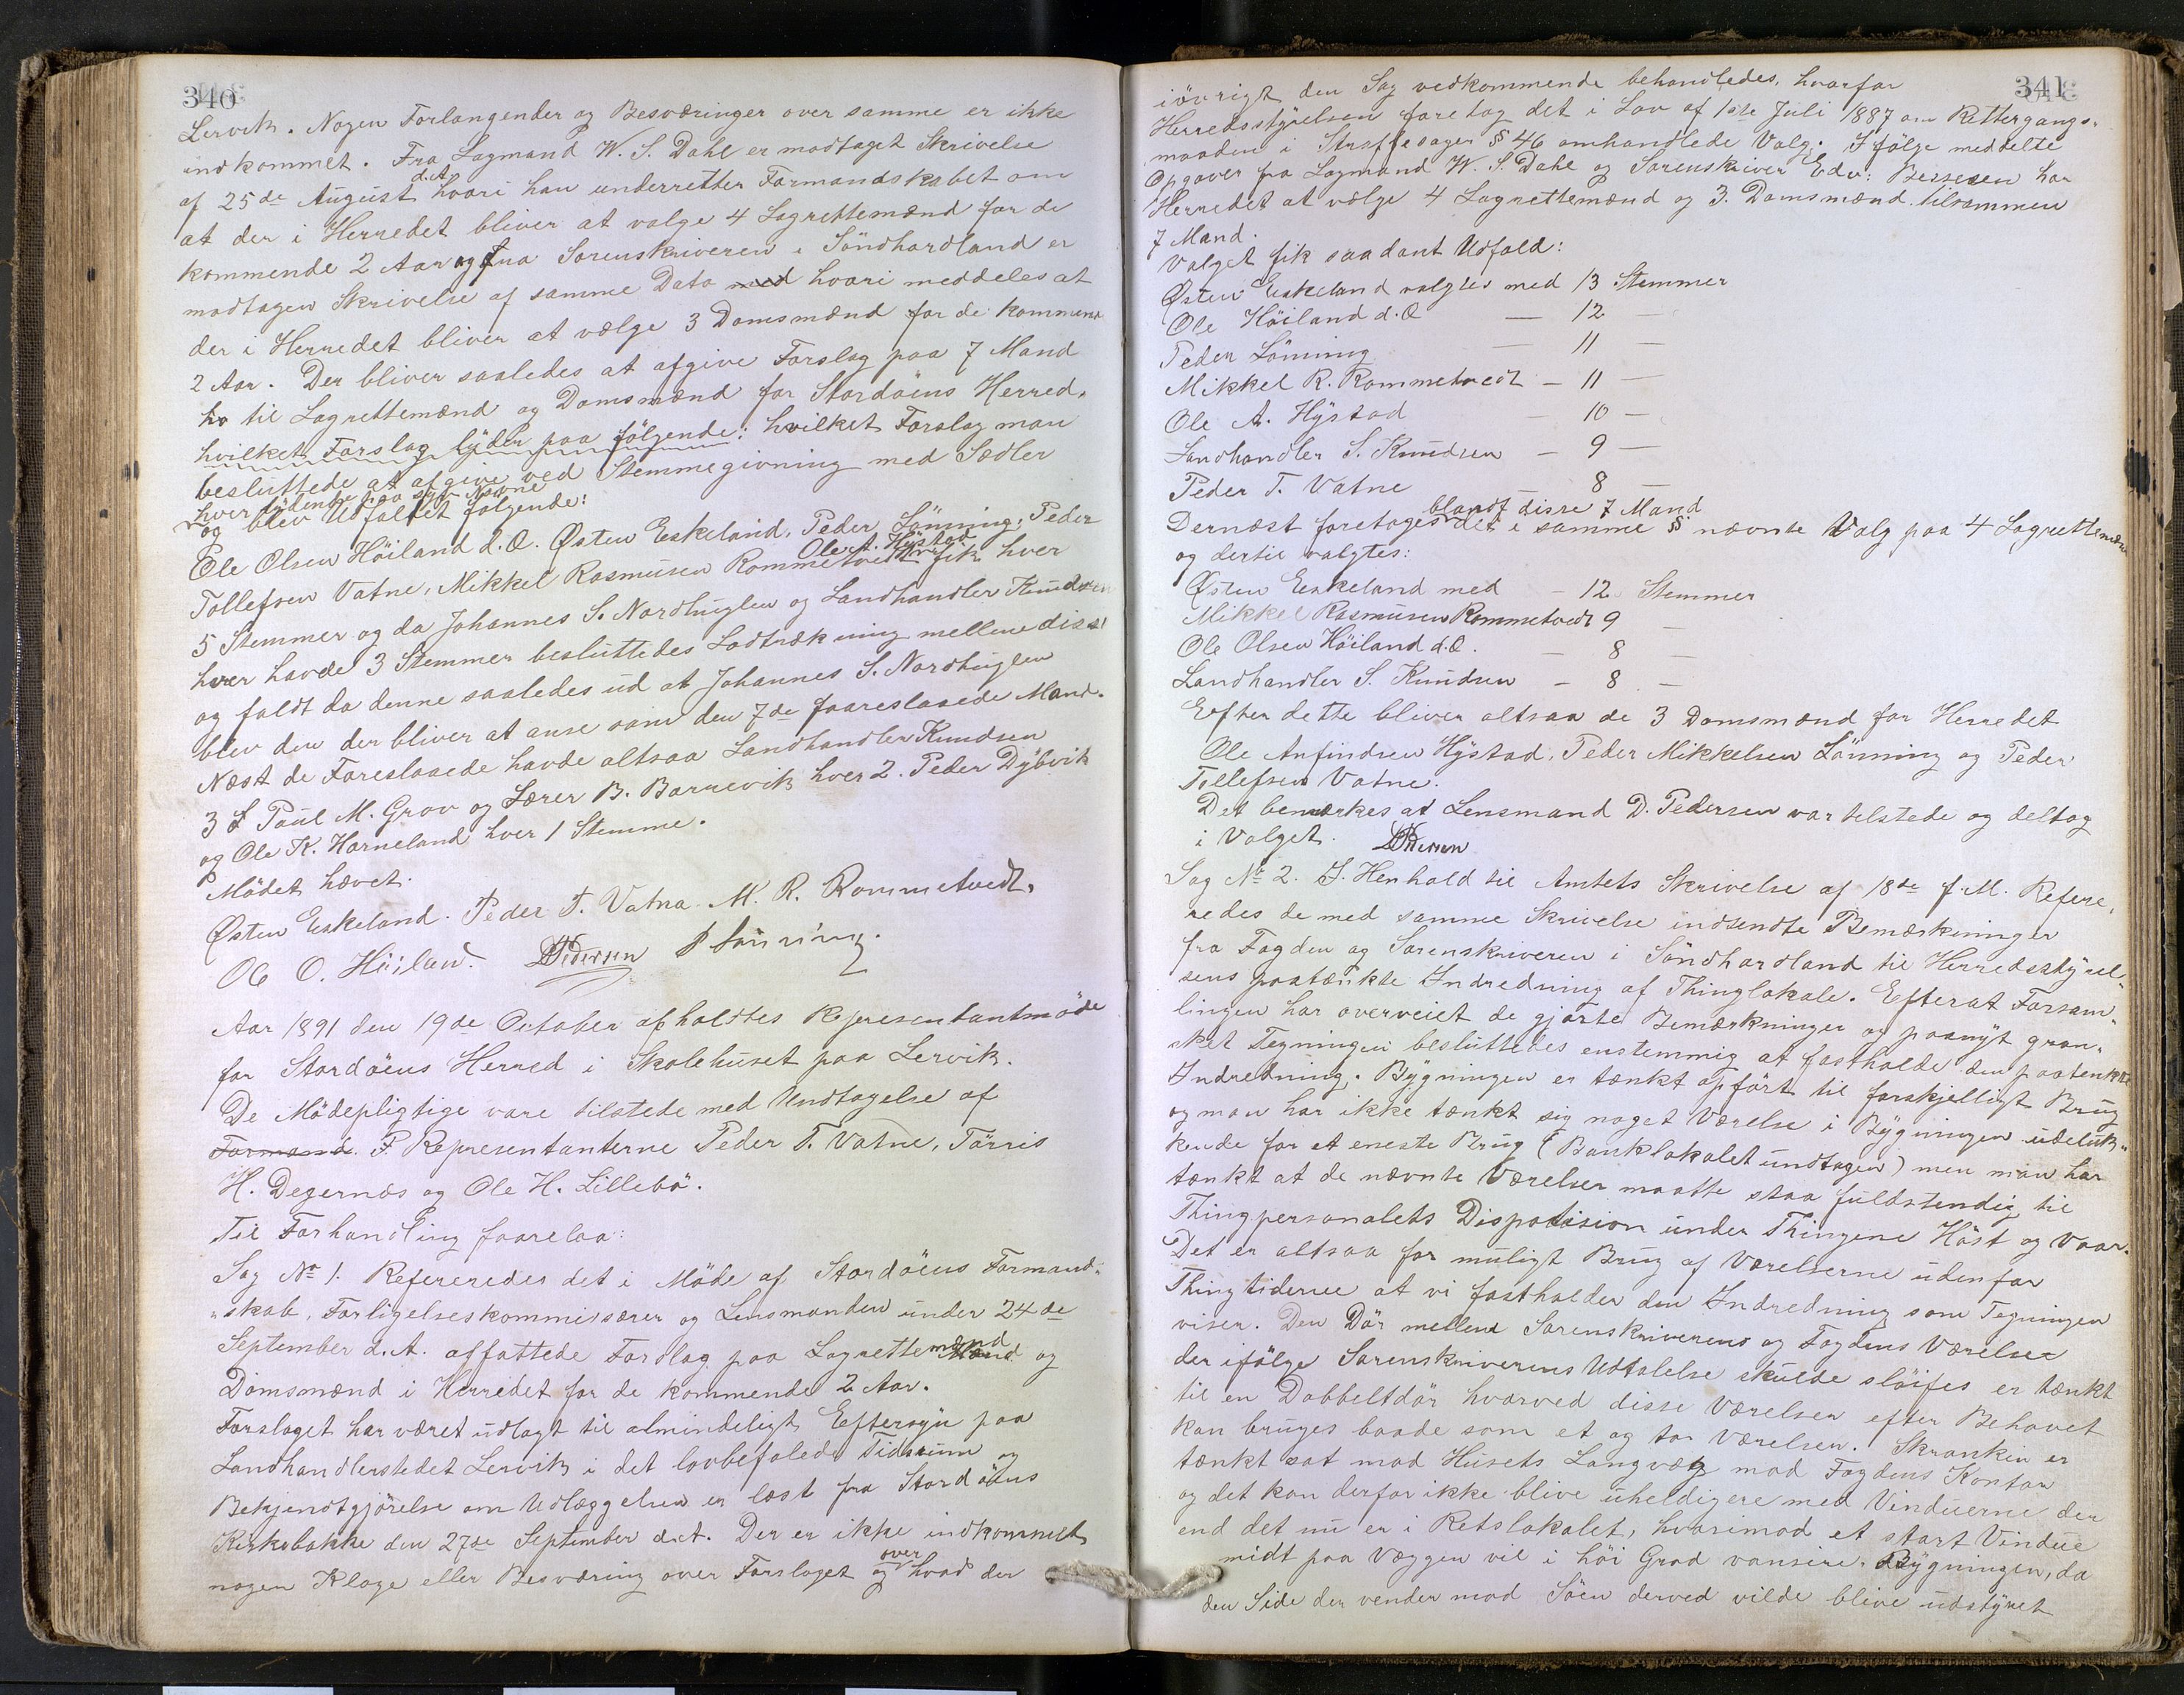 340
Lervik. Nogen Forlangender og Besværinger over samme er ikke
indkommet. Fra Lagmand W. S. Dahl er modtaget Skrivelse
af 25de August d.A. hvori han underretter Formandskabet om
at der i Herredet bliver at valge 4 Lagrettemænd for de
kommende 2 Aar og fra Sorenskriveren i Söndhordland er
modtagen Skrivelse af samme Dato med hvori meddeles at
der i Herredet bliver at vælge 3 Domsmænd for de kommende
2 Aar. Der bliver saaledes at afgive Forslag paa 7 Mand
hv til Lagrettemænd og Domsmænd for Stordöens Herred,
hvilket Forslag lyder paa fölgende: hvilket Forslag man
besluttede at afgive ved Stemmegivning med Sedler
hver lydende paa syv Navne
og blev Udfaldet fölgende:
Ole Olsen Höiland d.Æ. Østen Eskeland, Peder Lönning, Peder
Tollefsen Vatne, Mikkel Rasmusen Rommetvedt Ole A. Hystad fik hver
5 Stemmer og da Johannes S. Nordhuglen og Landhandler Knudsen
hver havde 3 Stemmer besluttedes Lodtrækning mellem disse
og faldt da denne saaledes ud at Johannes S. Nordhuglen
blev den der bliver at anse som den 7de foareslaaede Mand.
Næst de Foreslaaede havde altsaa Landhandler Knudsen
3 S Paul M. Grov og Lærer B. Barnevik hver 2. Peder Dybvik
og Ole K. Horneland hver 1 Stemme.
Mödet hævet.
Østen Eskeland. Peder T. Vatna. M. R. Rommetvedt,
Ole O. Höiland. D Pedersen P Lönning.
Aar 1891 den 19de October afholdtes Representantmöde
for Stordöens Herred i Skolehuset paa Lervik.
De Mödepligtige vare tilstede med Undtagelse af
Formand. F. Representanterne Peder T. Vatne, Törris
H. Degernæs og Ole H. Lillebö.
Til Forhandling foarelaa:
Sag No 1. Refereredes det i Möde af Stordöens Formand-
"skab, Forligelseskommissærer og Lensmanden under 24de
September d.A. affattede Forslag paa Lagrettemænd og
Domsmænd i Herredet for de kommende 2 Aar.
Forslaget har været udlagt til almindeligt Eftersyn paa
Landhandlerstedet Lervik i det lovbefalede Tidsrum og
Bekjendtgjörelse om Udlæggelsen er læst fra Stordöens
Kirkebakke den 27de September d.A. Der er ikke indkommet
nogen Klage eller Besværing over Forslaget og over hvad der
341
iövrigt den Sag vedkommende behandledes, hvorfor
Herredsstyrelsen foretog det i Lov af 1ste Juli 1887 om Rettergangs-
maaden i Straffesager § 46 omhandlede Valg. Ifölge meddelte
Opgaver fra Lagmand W. S. Dahl og Sorenskriver Edv: Bessesen har
Herredet at vælge 4 Lagrettemænd og 3 Domsmænd tilsammen
7 Mand.
Valget fik saadant Udfald:
Østen Eskeland valgtes med 13 Stemmer
Ole Höiland d.Æ — 12 —
Peder Lönning — 11 —
Mikkel R. Rommetvedt — 11 —
Ole A. Hystad — 10 —
Landhandler S. Knudsen — 9 —
Peder T. Vatne — 8 —
Dernæst foretoges blandt disse 7 Mand det i samme § nævnte Valg paa 4 Lagrettemænd
og dertil valgtes:
Østen Eskeland med — 12 Stemmer
Mikkel Rasmusen Rommetvedt 9 —
Ole Olsen Höiland d.Æ. — 8 —
Landhandler S. Knudsen — 8 —
Efter dette bliver altsaa de 3 Domsmænd for Herredet
Ole Anfindsen Hystad, Peder Mikkelsen Lönning og Peder
Tollefsen Vatne.
Det bemærkes at Lensmand D. Pedersen var tilstede og deltog
i Valget. D Pedersen
Sag No 2. I Henhold til Amtets Skrivelse af 18de f.M. Refere-
redes de med samme Skrivelse indsendte Bemærkninger
fra Fogden og Sorenskriveren i Söndhordland til Herredsstyrel-
sens paatænkte Indredning af Thinglokale. Efterat Forsam-
lingen har overveiet de gjorte Bemærkninger og paanyt gran-
sket Tegningen besluttedes enstemmig at fastholde den paatenkte
Indredning. Bygningen er tænkt opfört til forskjelligt Brug
og man har ikke tænkt sig noget Værelse i Bygningen udeluk-
kende for et eneste Brug (Banklokalet undtagen) men man har
tænkt at de nævnte Værelser maatte staa fuldstendig til
Thingpersonalets Disposision under Thingene Höst og Vaar.
Det er altsaa for muligt Brug af Værelserne udenfor
Thingtiderne at vi fastholder den Indredning som Tegningen
viser. Den Dör mellem Sorenskriverens og Fogdens Værelser
der ifölge Sorenskriverens Udtalelse skulde slöifes er tænkt
til en Dobbeltdör hvorved disse Værelser efter Behovet
kan bruges baade som et og tor Værelser. Skrankin er
tænkt sat mod Husets Langvæg mod Fogdens Kontor
og det kan derfor ikke blive uheldigere med Vinduerne der
end det nu er i Retslokalet, hvorimod et stort Vindue
midt paa Væggen vil i höi Grad vansire Bygningen, da
den Side der vender mod Söen derved vilde blive udstyret